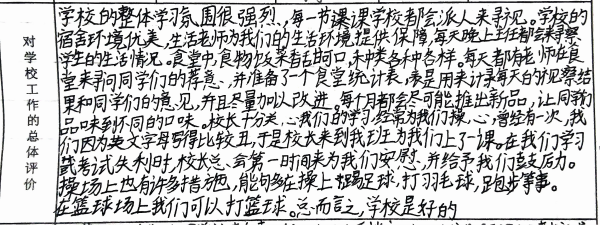 对学校工作的总体评价
学校的整体学习氛围很强烈,每一节课课学校都会派人来寻见。学校的
宿舍环境优美,生活老师为我们的生活环境提供保障,每天晚上主任都会来寻察
学生的生活情况。食堂中,食物饭菜有出可口,种类各种各样。每天都有老师在食
堂来寻问同学们的荐意,并准备了一个食堂统计表,旁是用来记录每天的视察结
果和同学们的意见,并且尽量加以改进。每个月都会尽可能推出新品,让同学们
品味到不同的口味。校长十分关心我们的学习经常为我们操心,曾经有一次,我
们因为英文字母写得比较丑,于是校长来到我班为我们上了一课。在我们学习
或考试失利时,校长总会第一时间来为我们安慰,并给予我们鼓励。
操场上也有许多措施,能够在操上踢足球,打羽毛球,跑步等事。
在篮球场上我们可以打篮球。总而言之,学校是好的